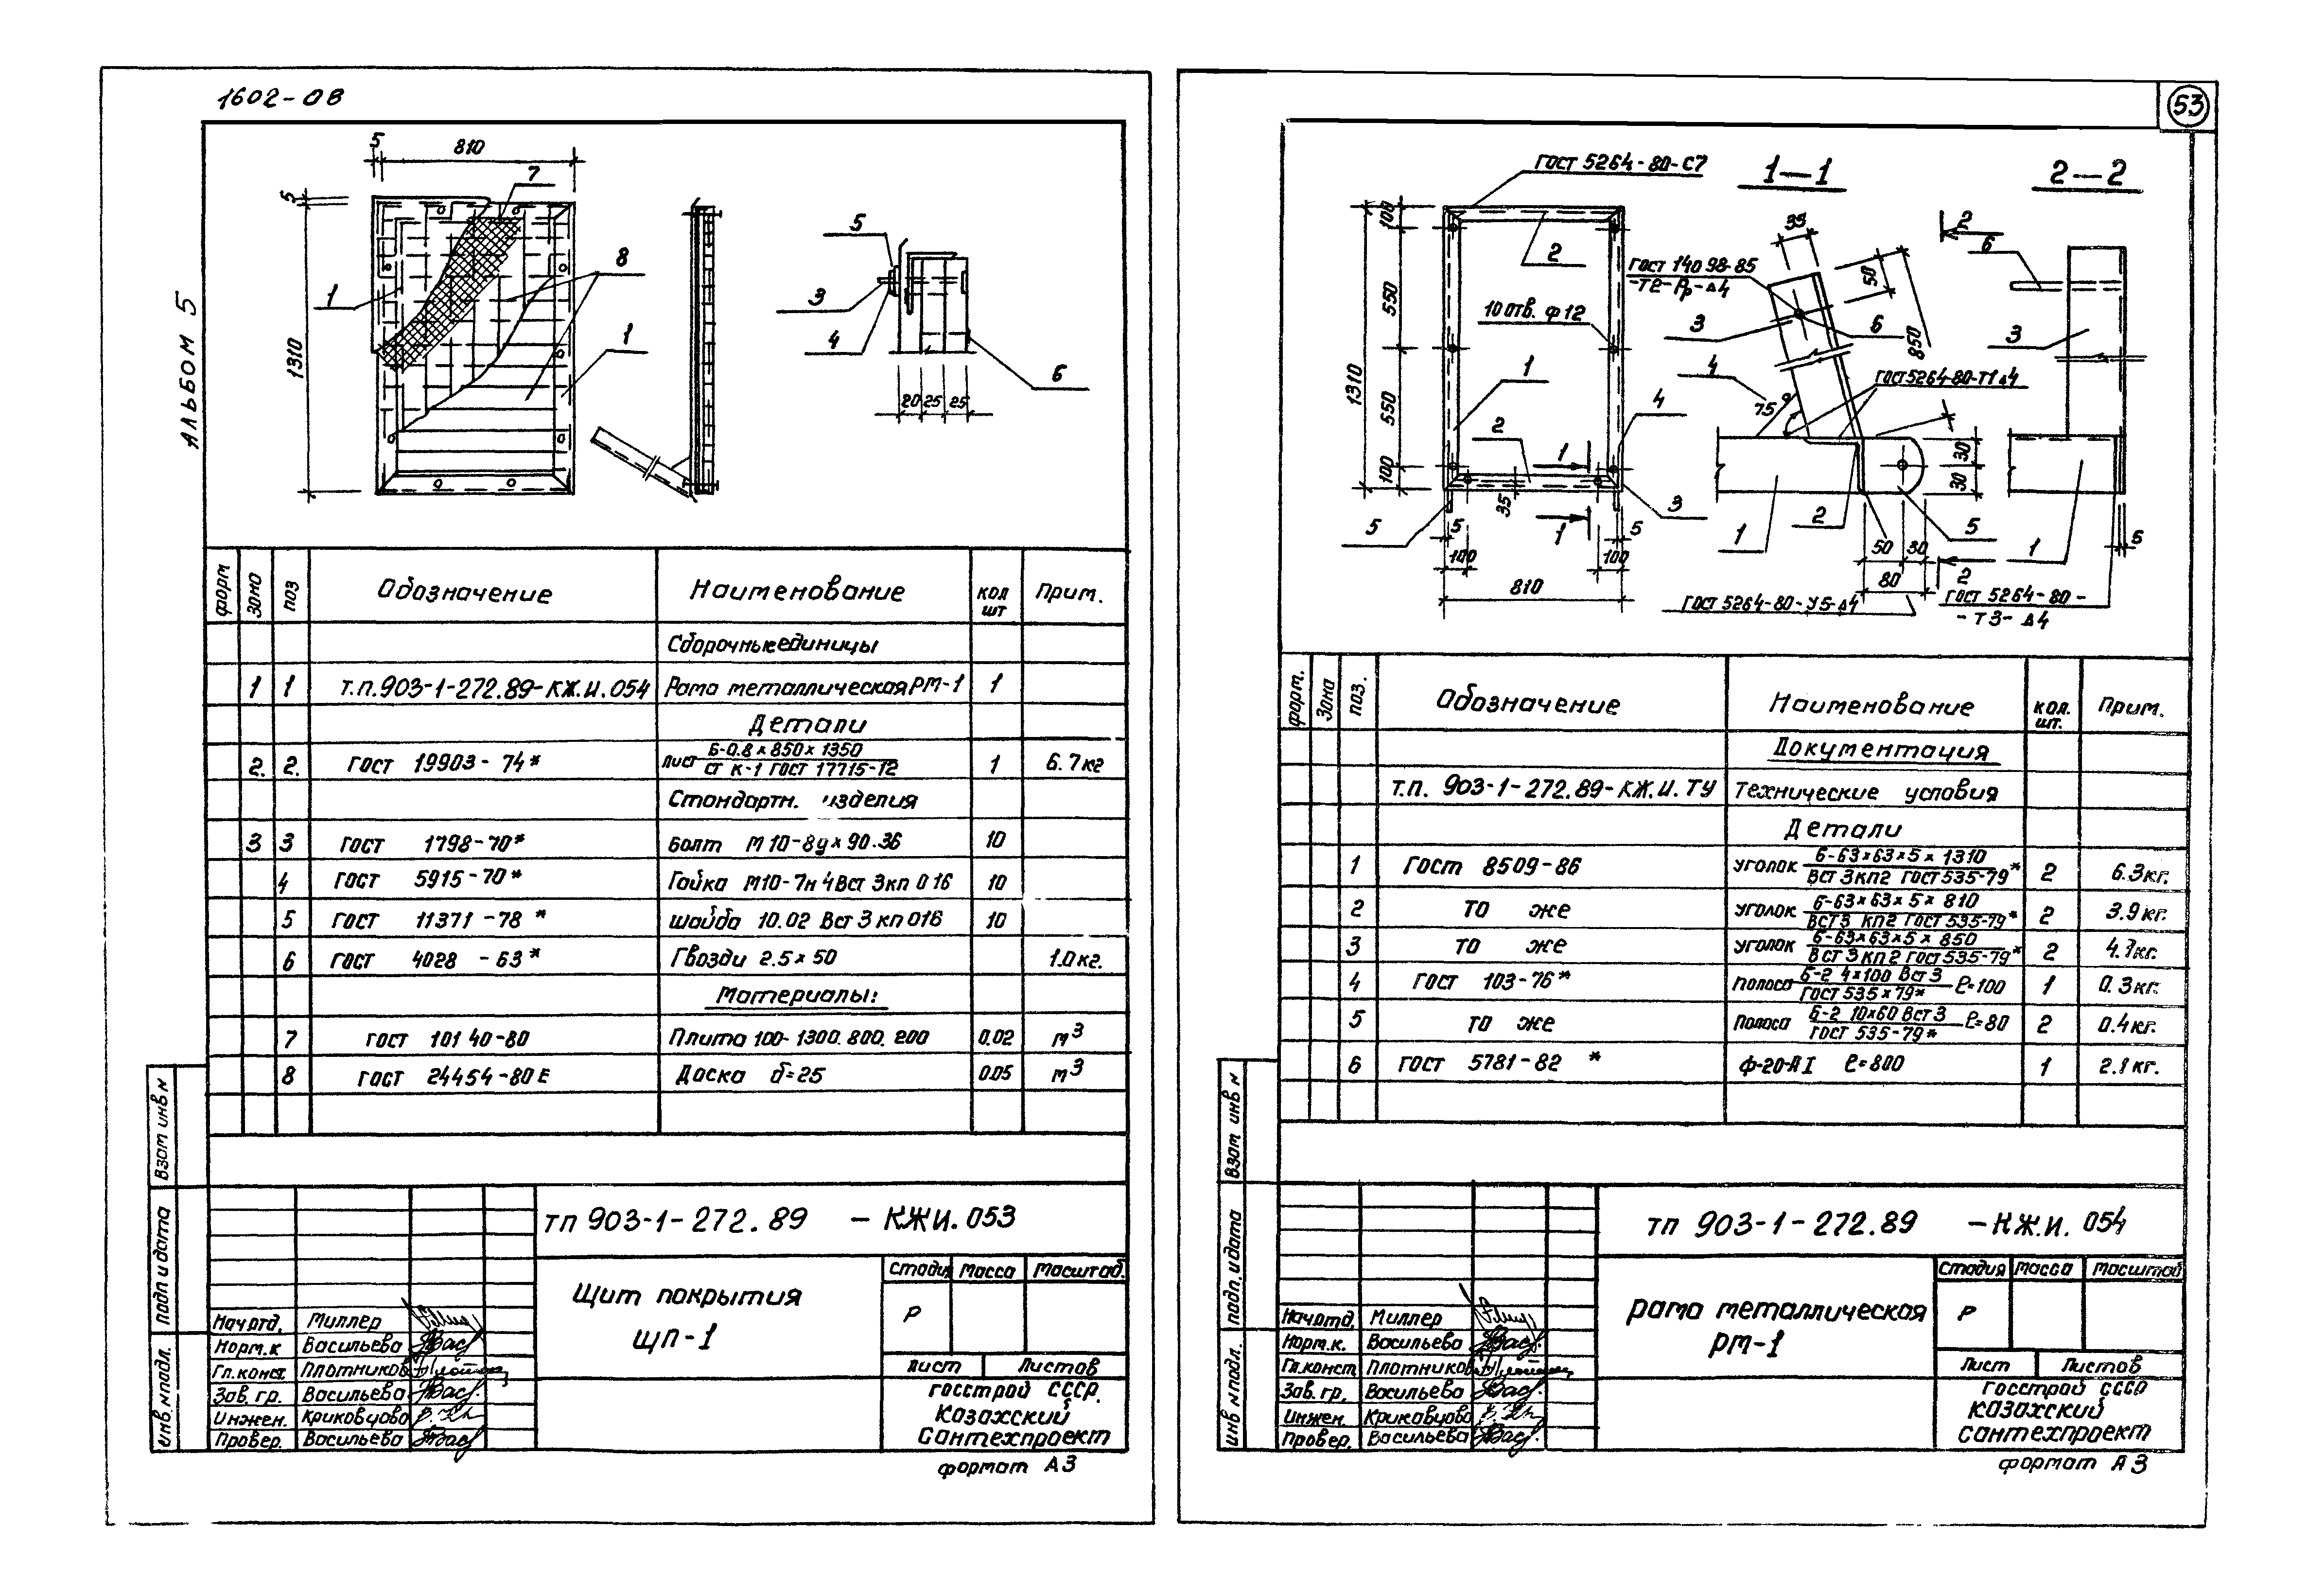 1602-ОВ
АЛЬБОМ 5
5
810
5
1310
7
8
1
1
5
3
4
6
20 25 25
форм
Зона
поз
Обозначение
Наименование
кол шт
Прим.
Сборочные единицы
1 1 т.п.903-1-272.89-КЖ.И.054 Рама металлическая РМ-1 1
Детали
2. 2. ГОСТ 19903-74* Лист Б-0.8×850×1350 1 6.7кг
Ст К-1 ГОСТ 17715-72
Стандартн. изделия
3 3 ГОСТ 1798-70* Болт М10-8g×90.36 10
4 ГОСТ 5915-70* Гайка М10-7н4Вст3кп016 10
5 ГОСТ 11371-78* шайба 10.02 Вст3кп016 10
6 ГОСТ 4028-63* Гвозди 2.5×50 1.0кг.
Материалы:
7 ГОСТ 10140-80 Плита 100-1300.800.200 0.02 м3
8 ГОСТ 24454-80Е Доска δ=25 0.05 м3
Взам инв N
Подп и дата
инв N подл.
тп 903-1-272.89 -КЖИ.053
Щит покрытия
ЩП-1
Стадия Масса Масштаб.
Р
Лист Листов
Госстрой СССР.
Казахский
Сантехпроект
Нач отд. Миллер
Норм.к Васильева
Гл.конст. Плотников
Зав. гр. Васильева
Инжен. Криковцова
Провер. Васильева
формат А3
53
ГОСТ 5264-80-С7
1-1
2-2
100
550
1310
550
100
2
10 отв. ф12
1
2
4
1
1
3
5
5
5
35
100
100
810
ГОСТ 14098-85
-Т2-Рр-Δ4
35
50
850
3
6
4
75°
ГОСТ 5264-80-Т1Δ4
30
30
1
1
2
5
50 30
80
ГОСТ 5264-80-У5-Δ4
2
6
3
1
5
2
ГОСТ 5264-80-
-Т3-Δ4
форм.
Зона
поз.
Обозначение
Наименование
кол. шт.
Прим.
Документация
т.п. 903-1-272.89-КЖ.И.ТУ Технические условия
Детали
1 ГОСТ 8509-86 уголок Б-63×63×5×1310 2 6.3кг.
Вст3кп2 ГОСТ535-79*
2 то же уголок Б-63×63×5×810 2 3.9кг.
Вст3 кп2 ГОСТ 535-79*
3 то же уголок Б-63×63×5×850 2 4.1кг.
Вст3кп2 ГОСТ535-79*
4 ГОСТ 103-76* Полоса Б-2 4×100 Вст3 ℓ=100 1 0.3кг.
ГОСТ 535×79*
5 то же Полоса Б-2 10×60 Вст3 ℓ=80 2 0.4кг.
ГОСТ 535-79*
6 ГОСТ 5781-82* ф-20-АI ℓ=800 1 2.1кг.
Взам инв N
подп. и дата
инв N подл.
тп 903-1-272.89 -КЖ.И. 054
Рама металлическая
РМ-1
Стадия Масса Масштаб
Р
Лист Листов
Госстрой СССР
Казахский
сантехпроект
Нач.отд. Миллер
Норм.к. Васильева
Гл.конст Плотников
Зав. гр. Васильева
Инжен. Криковцова
Провер. Васильева
формат А3